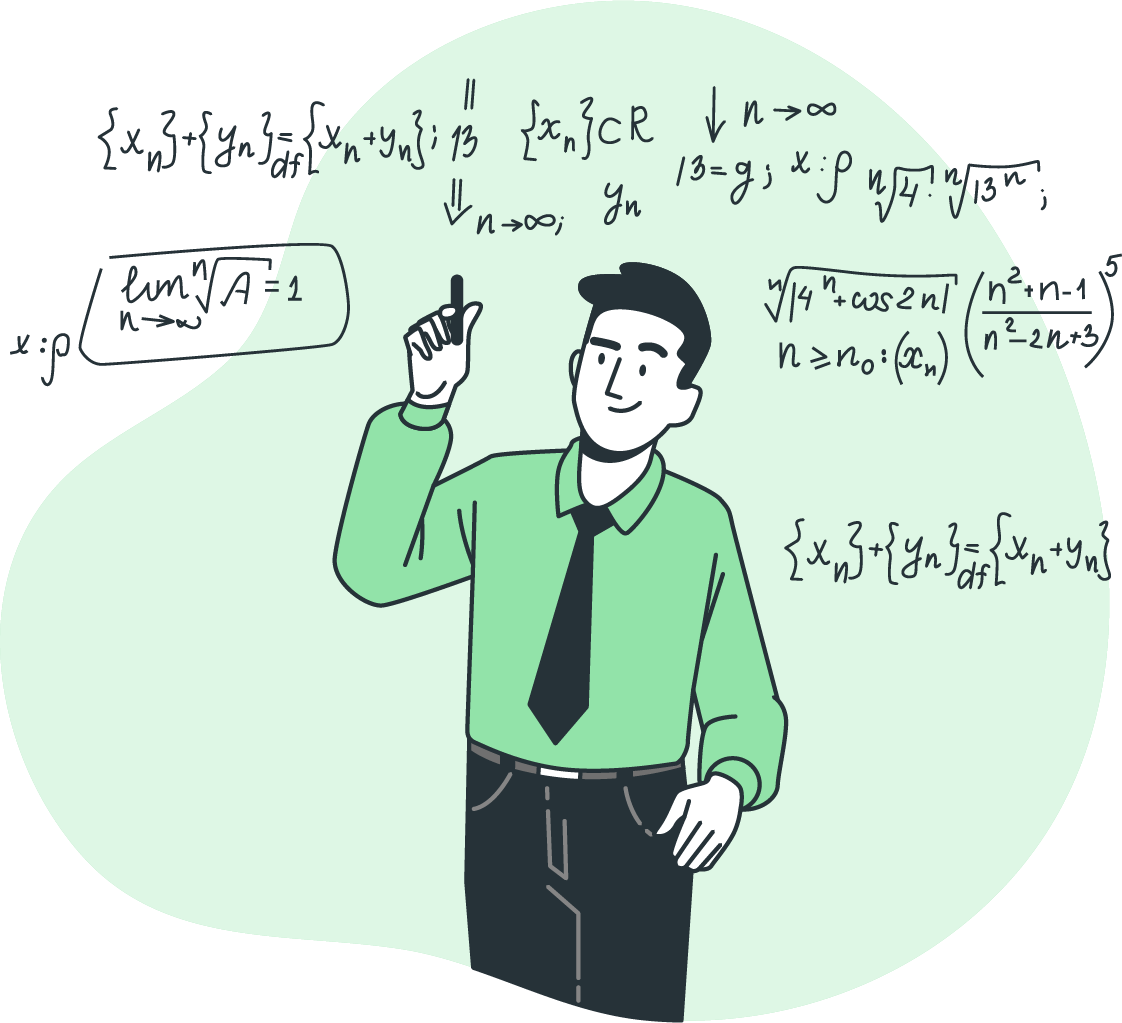 {xₙ}+{yₙ}=df{xₙ+yₙ}; 13 {xₙ}⊂R ↓ n→∞
‖
⇓ n→∞; yₙ
13=g; x:ρ ⁿ√4·ⁿ√13ⁿ;
lim n→∞ ⁿ√A=1
x:ρ
ⁿ√|4ⁿ+cos2n| (n²+n-1/n²-2n+3)⁵
n≥n₀:(xₙ)
{xₙ}+{yₙ}=df{xₙ+yₙ}